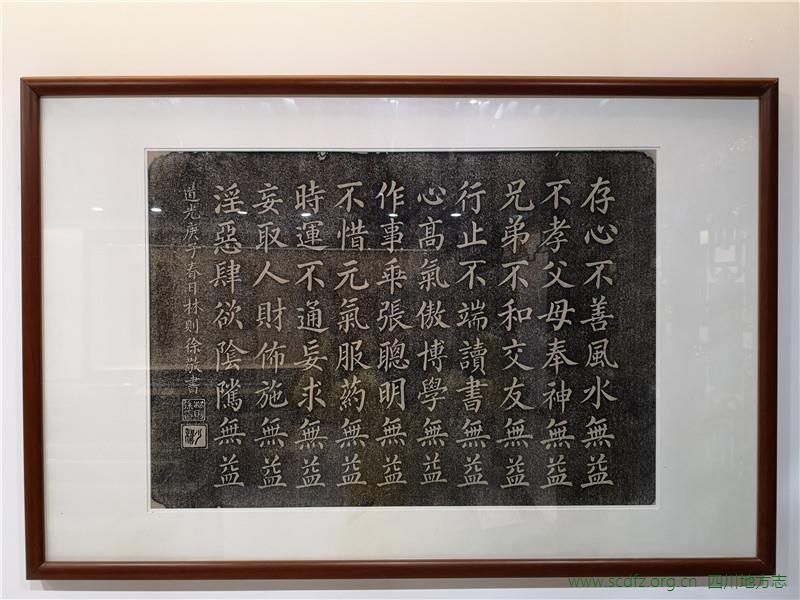 存心不善風水無益
不孝父母奉神無益
兄弟不和交友無益
行止不端讀書無益
心高氣傲博學無益
作事乖張聰明無益
不惜元氣服药無益
時運不通妄求無益
妄取人財佈施無益
淫惡肆欲陰隲無益
道光庚子春日林則徐敬書
www.scdfz.org.cn 四川地方志